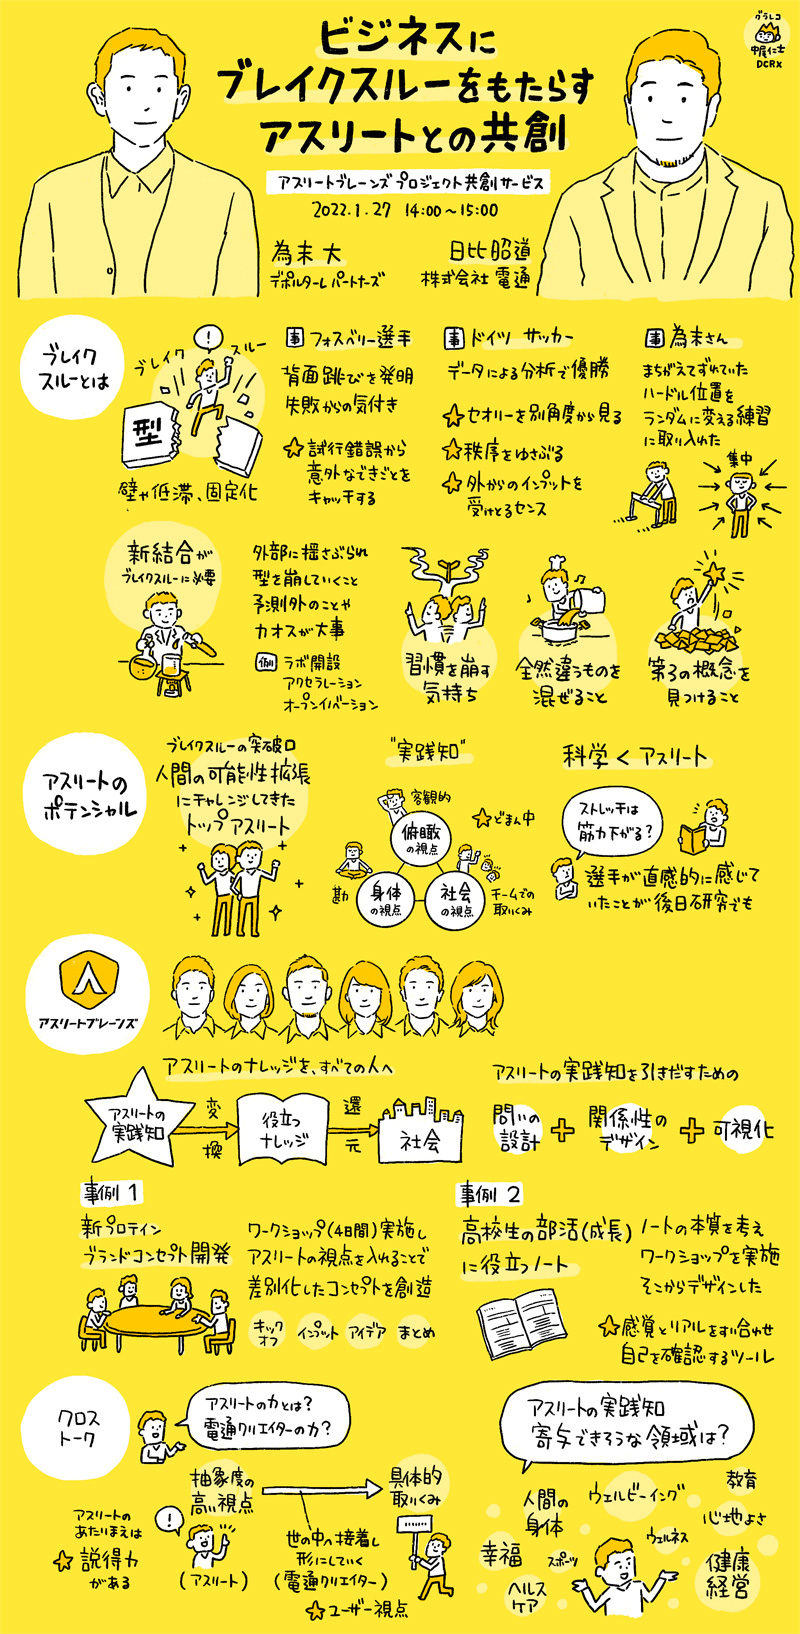 グラレコ
中尾仁士
DCRX
ビジネスに
ブレイクスルーをもたらす
アスリートとの共創
アスリートブレーンズ プロジェクト共創サービス
2022.1.27 14:00〜15:00
為末 大
デポルターレパートナーズ
日比昭道
株式会社 電通
ブレイク
スルーとは
ブレイク
スルー
!
型
壁や低滞、固定化
事 フォスベリー選手
背面跳びを発明
失敗からの気付き
☆試行錯誤から
意外なできごとを
キャッチする
事 ドイツ サッカー
データによる分析で優勝
☆セオリーを別角度から見る
☆秩序をゆさぶる
☆外からのインプットを
受けとるセンス
事 為末さん
まちがえてずれていた
ハードル位置を
ランダムに変える練習
に取り入れた
集中
新結合が
ブレイクスルーに必要
外部に揺さぶられ
型を崩していくこと
予測外のことや
カオスが大事
例 ラボ開設
アクセラレーション
オープンイノベーション
習慣を崩す
気持ち
全然違うものを
混ぜること
第3の概念を
見つけること
アスリートの
ポテンシャル
ブレイクスルーの突破口
人間の可能性拡張
にチャレンジしてきた
トップアスリート
"実践知"
客観的
俯瞰
の視点
☆どまん中
勘
身体
の視点
社会
の視点
チームでの
取りくみ
科学<アスリート
ストレッチは
筋力下がる?
選手が直感的に感じて
いたことが後日研究でも
アスリートブレーンズ
アスリートのナレッジを、すべての人へ
アスリートの
実践知
変
換
役立つ
ナレッジ
還
元
社会
アスリートの実践知を引きだすための
問いの
設計
+
関係性の
デザイン
+
可視化
事例1
新プロテイン
ブランドコンセプト開発
ワークショップ(4日間)実施し
アスリートの視点を入れることで
差別化したコンセプトを創造
キック
オフ
インプット
アイデア
まとめ
事例2
高校生の部活(成長)
に役立つノート
ノートの本質を考え
ワークショップを実施
そこからデザインした
☆感覚とリアルをすり合わせ
自己を確認するツール
クロス
トーク
アスリートの力とは?
電通クリエイターの力?
抽象度の
高い視点
具体的
取りくみ
アスリートの
あたりまえは
☆説得力
がある
!
(アスリート)
世の中へ接着し
形にしていく
(電通クリエイター)
☆ユーザー視点
アスリートの実践知
寄与できそうな領域は?
人間の
身体
ウェルビーイング
教育
心地よさ
幸福
スポーツ
ウェルネス
ヘルス
ケア
健康
経営